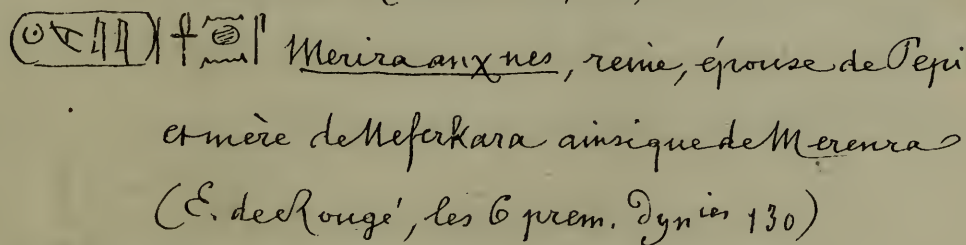 𓍹𓇳𓌸𓇋𓇋𓍺𓋹𓈖𓐍𓈖𓋴 Merira anχ nes, reine, épouse de Pepi
et mère de Neferkara ainsi que de Merenra
(E. de Rougé, les 6 prem. Dyn^ies 130)